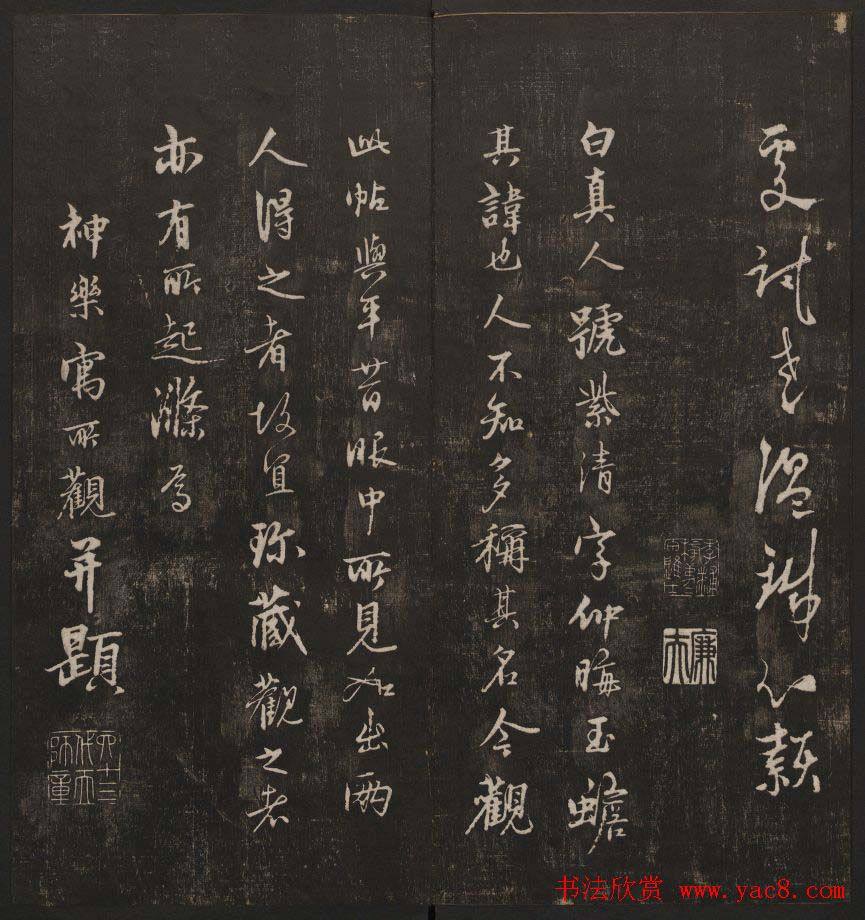 受試之温
白真人號紫清字仲晦玉蟾
其諱也人不知多稱其名今觀
此帖與平昔眼中所見如出兩
人得之者故宜珎藏觀之者
亦有所起滌焉
神樂寓所觀并題
書法欣賞 www.yac8.com